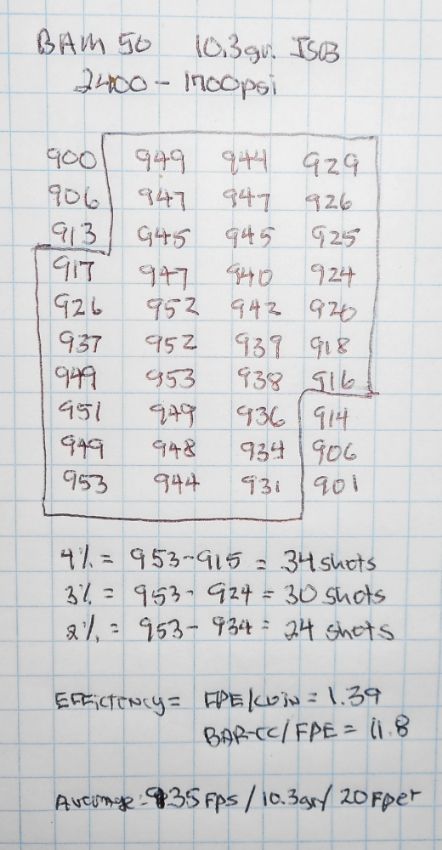 BAM 50 10.3gr. JSB
2400 - 1700psi
900 949 944 929
906 947 947 926
913 945 945 925
917 947 940 924
926 952 942 920
937 952 939 918
949 953 938 916
951 949 936 914
949 948 934 906
953 944 931 901
4% = 953-915 = 34 shots
3% = 953 - 924 = 30 shots
2% = 953 - 934 = 24 shots
EFFICIENCY = FPE/CUIN = 1.39
BAR-CC/FPE = 11.8
Average: 935 FPS / 10.3gr / 20